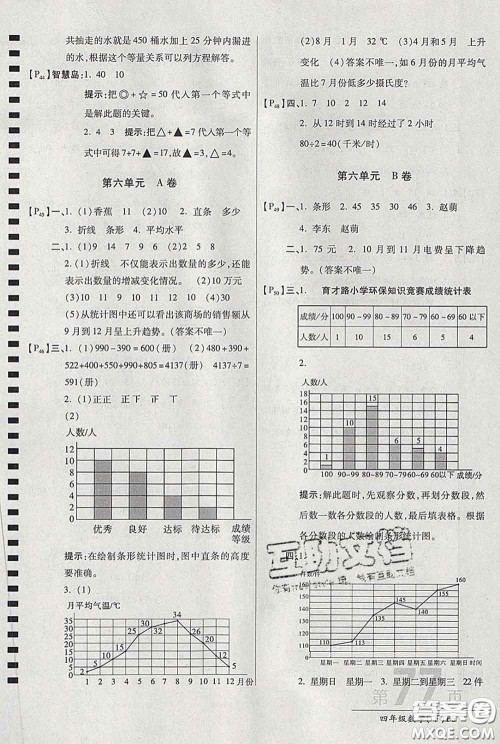 共抽走的水就是 450 桶水加上 25 分钟内漏进
的水,根据这个等量关系可以列方程解答。
【P44】智慧岛:1. 40 10
提示:把◎+☆=50 代入第一个等式中
是解此题的关键。
2. 4 3 提示:把△+▲=7 代入第一个等
式中可得7+7+▲=17,所以▲=3,△=4。
第六单元 A 卷
【P45】一、1. (1)香蕉 11 (2)10 2. 直条 多少
3. 折线 4. 平均水平
二、1. (1)9 14 7 9 6 (2)10 7 8
2. (1)折线 不仅能表示出数量的多少,还能
表示出数量的增减变化情况 (2)10万元
(3)从统计图中还可以看出该商场的销售额从
9 月到 12 月呈上升趋势。(答案不唯一)
【P46】三、1. (1)990-390=600(册) (2)390+460+
522+400+550+990+825=4137(册) 4137÷7=
591(册)
2. (1)正正 正下 正 丅
(2)
人数/人
12
11
10
9
8
7
6
5
4
3
2
1
0
优秀 良好 达标 待达标 成绩
等级
提示:在绘制条形统计图时,图中直条的高度
要准确。
3. (1)
月平均气温/℃
40
35
30
25
20
15
10
5
0
1 2 3 4 5 6 7 8 9 10 11 12 月份
(2)8 月 1 月 32 ℃ (3)4 月 8 月 上升
变化 (4)(答案不唯一)如 6 月的月平均气
温比 7 月份低多少摄氏度?
【P48】四、1. (答案不唯一)
2. 从 12 时到 14 时行驶了 2 小时
80÷2=40(千米/时)
第六单元 B 卷
【P49】一、1. 条形 2. 折线 3. 赵萌
4. 李东 赵萌
二、1. 75 元 2. 10 月到 11 月电费呈下降趋
势。(答案不唯一)
【P50】三、1. 育才路小学环保知识竞赛成绩统计表
成绩/分 100 90~99 80~89 70~79 60~69 60 以下
2.
人数/人
100 90~99 80~89 70~79 60~69 60以下 成绩/分
提示:解此题时,先观察分数,再划分分数段,
然后数一数各分数段的人数,最后填表格。根
据各分数段的人数绘制条形统计图。
四、1.
160
150
140
130
120
110
100
0
星期一 星期二 星期三 星期四 星期五 星期六 星期日 时间
2. 星期日 星期一 3. 星期二到星期三 22 件
第77页
四年级数学
答案圈
MXQE.COM